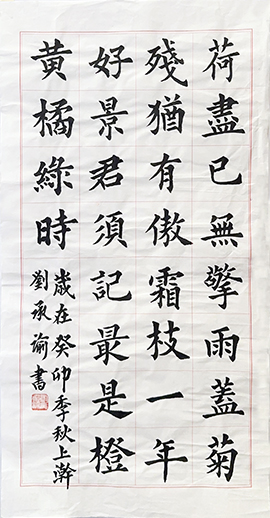 荷盡已無擎雨蓋菊
殘猶有傲霜枝一年
好景君須記最是橙
黃橘綠時
歲在癸卯季秋上澣
劉承諭書